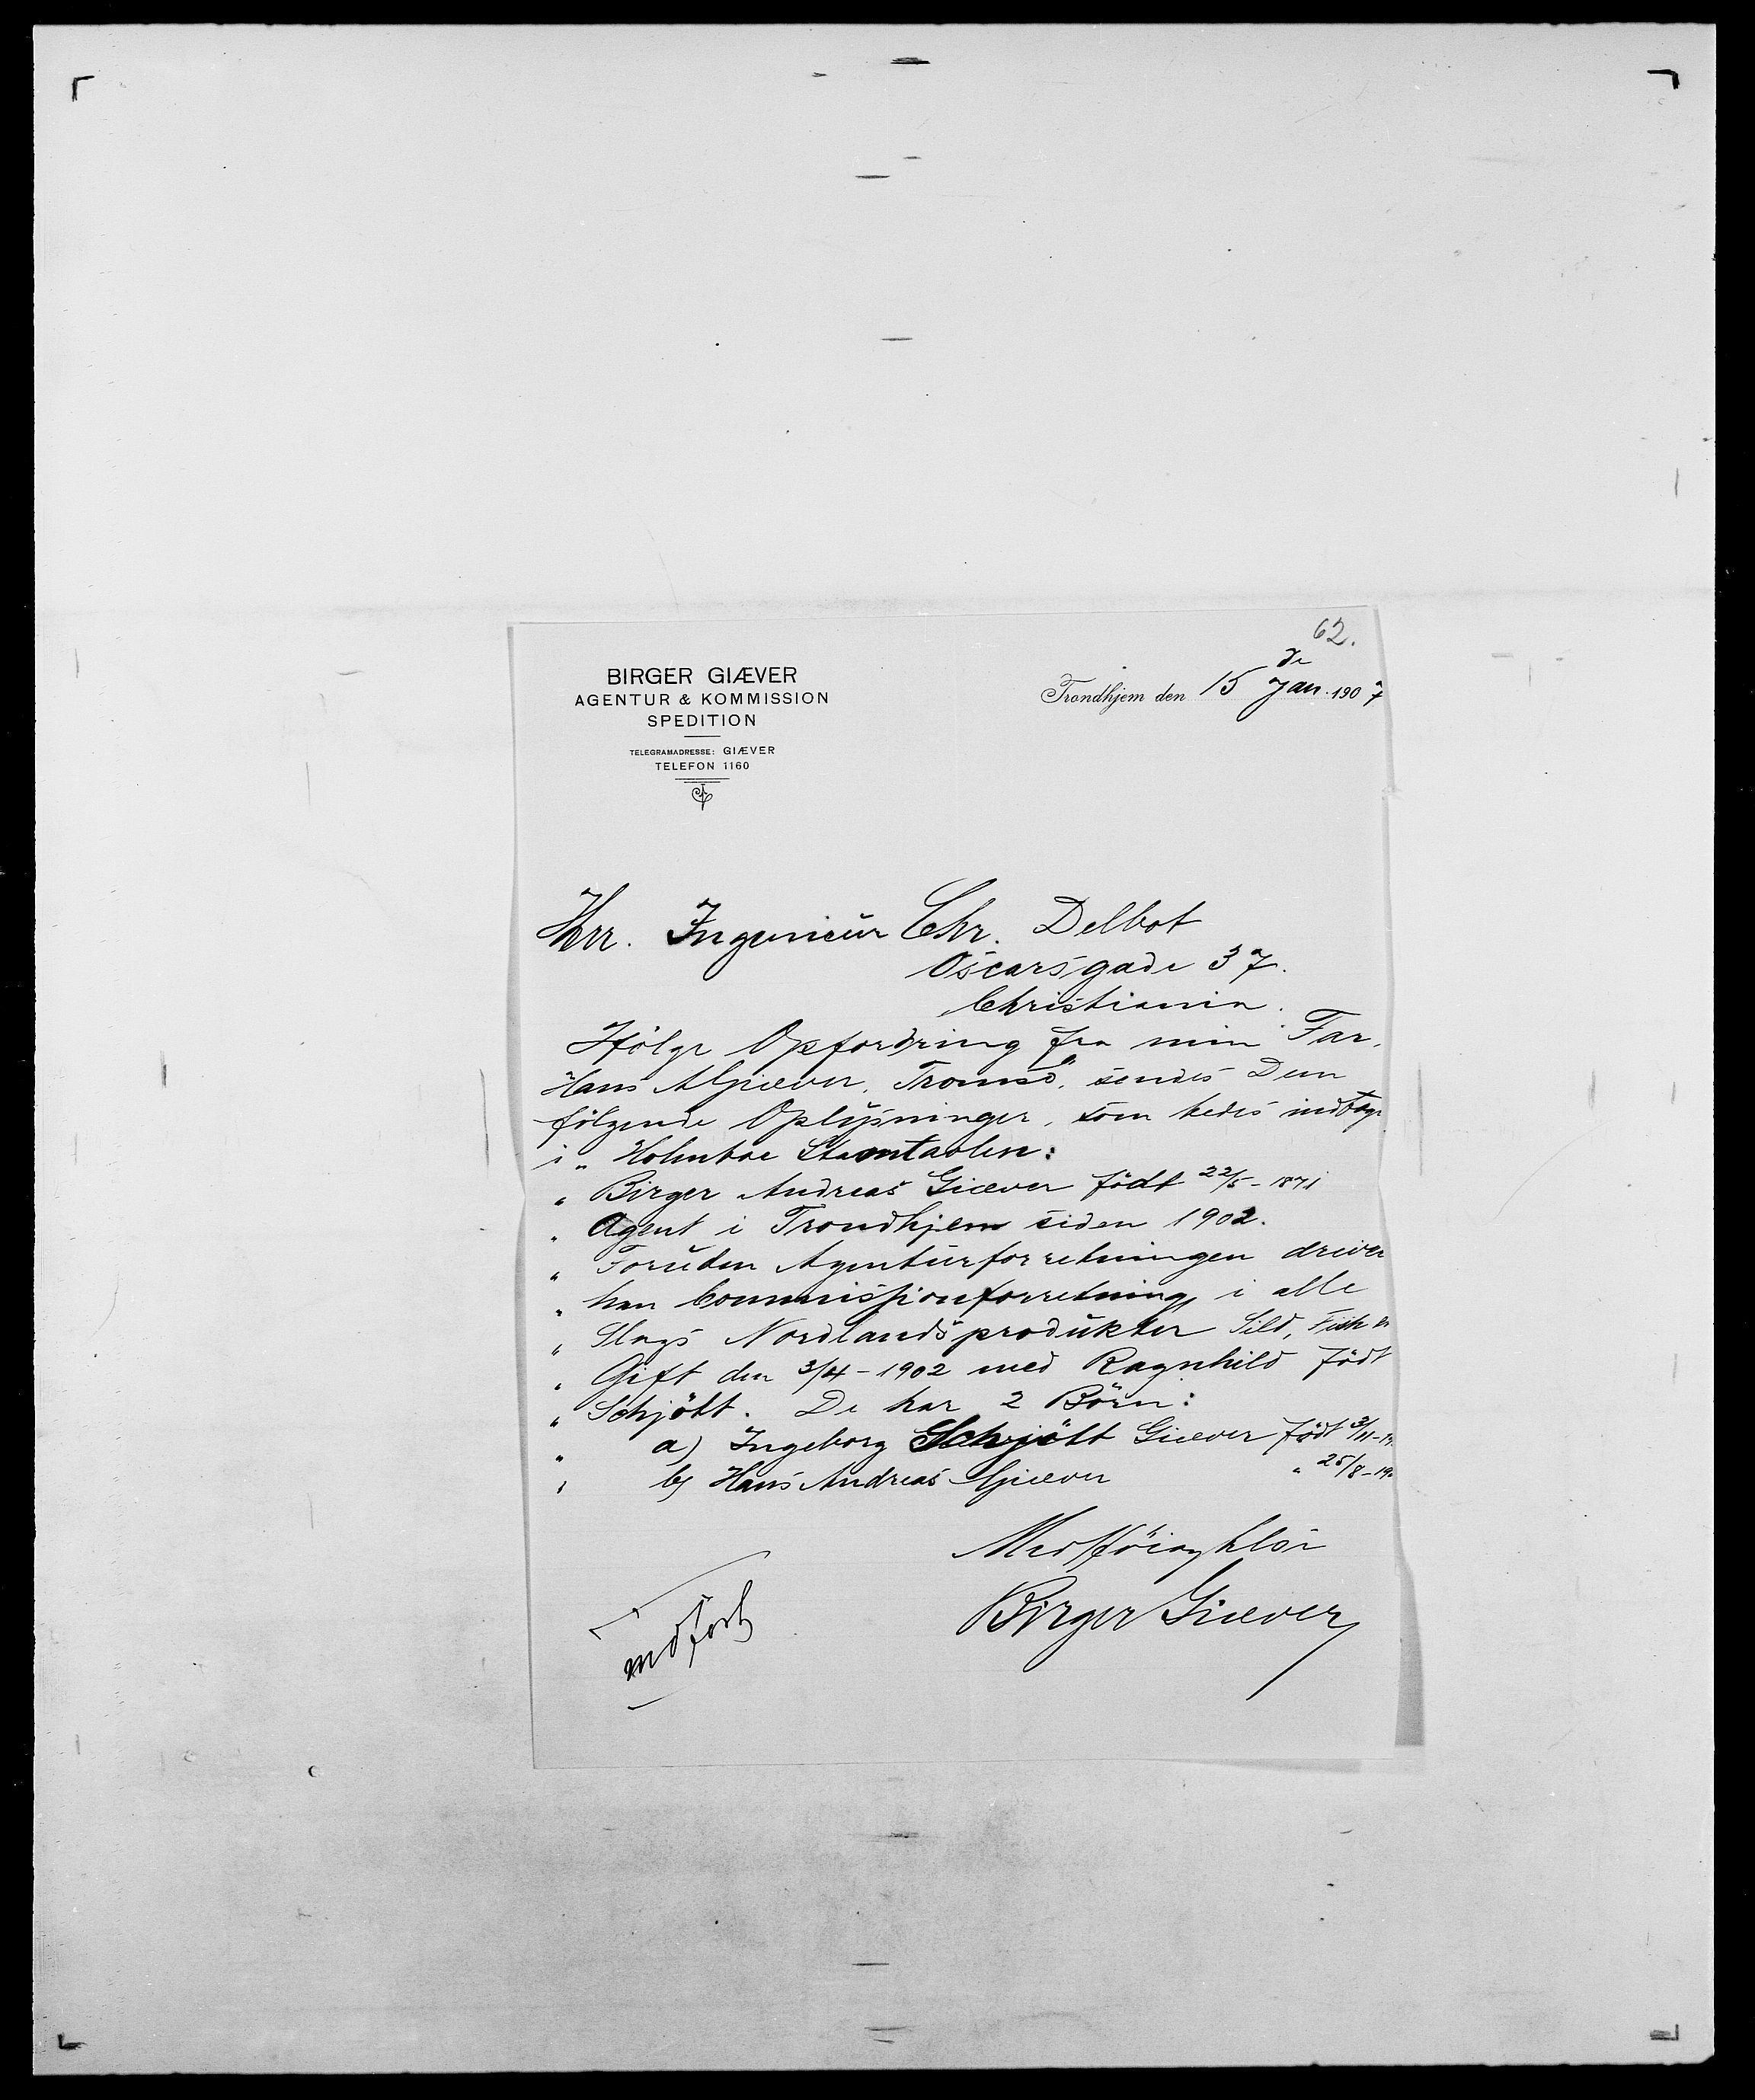 62.
BIRGER GIÆVER
AGENTUR & KOMMISSION
SPEDITION
TELEGRAMADRESSE: GIÆVER
TELEFON 1160
Trondhjem den 15 de Jan. 1907
Herr. Ingenieur Chr. Delbot
Oscarsgade 37.
Christiania.
Ifölge Opfordring fra min Far,
Hans A Giæver, Tromsö, sendes Dem
fölgende Oplysninger, som bedes indtage
i „ Holmboe Stamtavlen:
„ Birger Andreas Giæver födt 22/5 - 1871
„ Agent i Trondhjem siden 1902.
„ Foruden Agenturforretningen driver
„ han Commissionforretning i alle
„ Slags Nordlandsprodukter Sild, Fisk
„ Gift den 3/4 - 1902 med Ragnhild födt
„ Schjött. De har 2 Börn:
„ a) Ingeborg Schjött Giæver födt 3/11 - 19
„ b) Hans Andreas Giæver „ 25/8 - 190
Med Höiagtelse
Birger Giæver
indfört